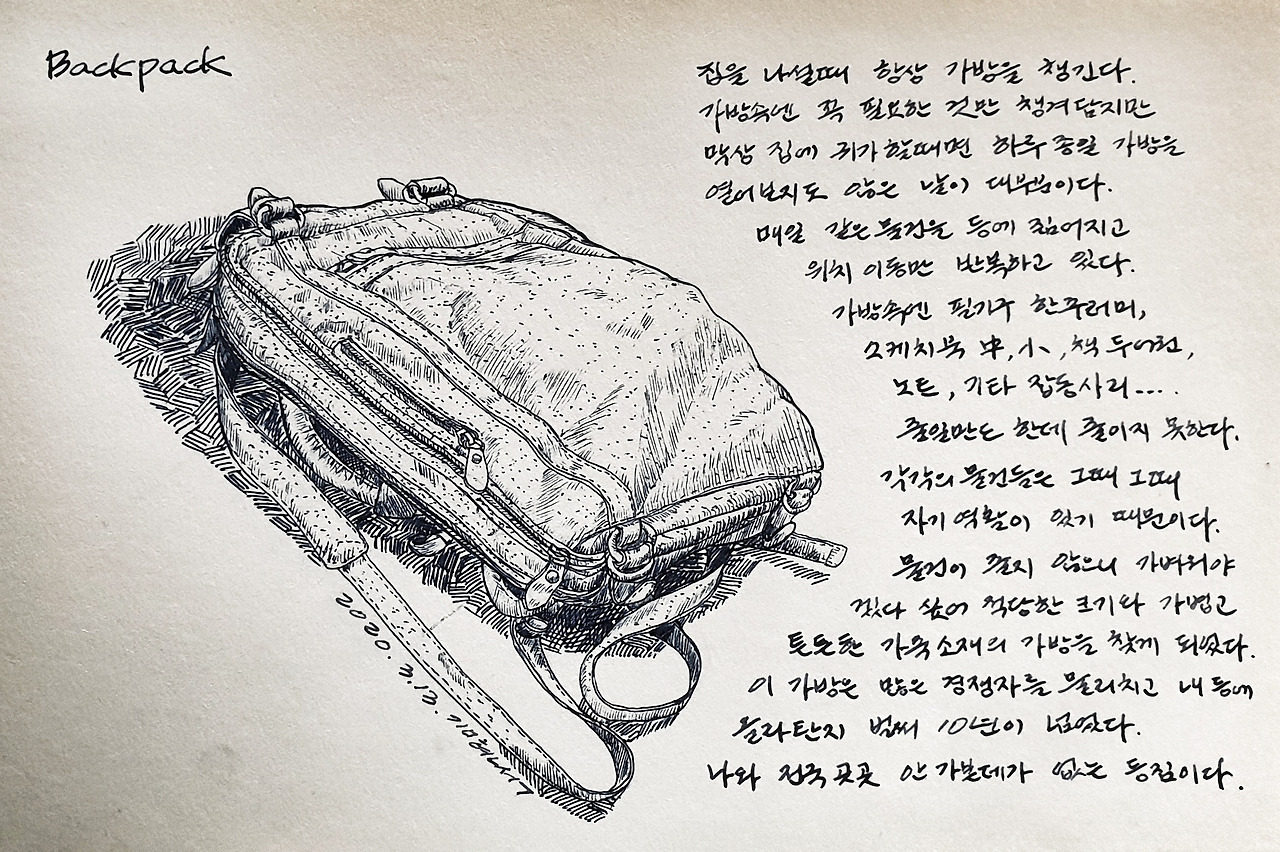 Backpack
집을 나설때 항상 가방을 챙긴다.
가방속엔 꼭 필요한 것만 챙겨담지만
막상 집에 귀가할때면 하루종일 가방을
열어보지도 않은 날이 대부분이다.
매일 같은 물건을 등에 짊어지고
위치 이동만 반복하고 있다.
가방속엔 필기구 한꾸러미,
스케치북 中,小,책 두어권,
노트, 기타 잡동사리....
줄일만도 한데 줄이지 못한다.
각각의 물건들은 그때 그때
자기 역활이 있기 때문이다.
물건이 줄지 않으니 가벼워야
겠다 싶어 적당한 크기와 가볍고
튼튼한 가죽소재의 가방을 찾게 되었다.
이 가방은 많은 경쟁자를 물리치고 내 등에
올라탄지 벌써 10년이 넘었다.
나와 전국 곳곳 안가본데가 없는 등짐이다.
2020. 3. 13.